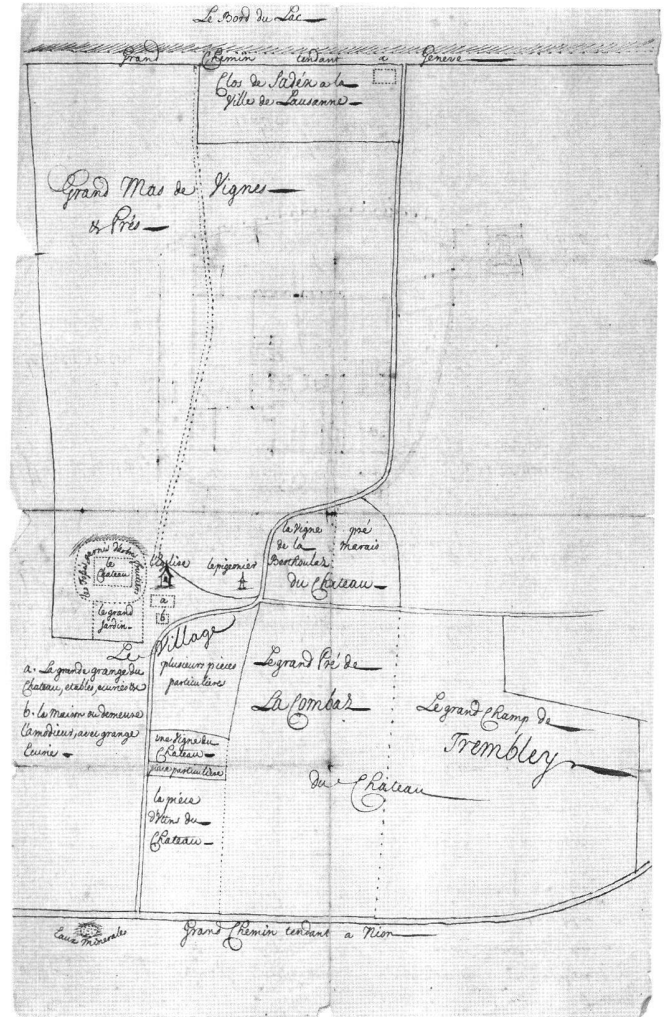 Le Bord du Lac
Grand Chemin tendant a Geneve
Clos de Sadéx a la
Ville de Lausanne
Grand Mas de Vignes
& Prés
la Vigne
de la
du Chateau
pré
marais
garnis d'arbres fruitiers
le
Chateau
le grand
Jardin
l'Eglise
le pigeonier
a
b
Le Village
plusieurs pièces
particulières
a. La grande grange du
Chateau, etables, ecuries &c
b. la maison ou demeure
l'amodieur, avec grange
Ecurie
Le grand Pré de
La Combaz
du Chateau
Le grand Champ de
Trembley
une Vigne du
Chateau
pièce particulière
la pièce
d'Utins du
Chateau
Eaux Minerales
Grand Chemin tendant a Nion